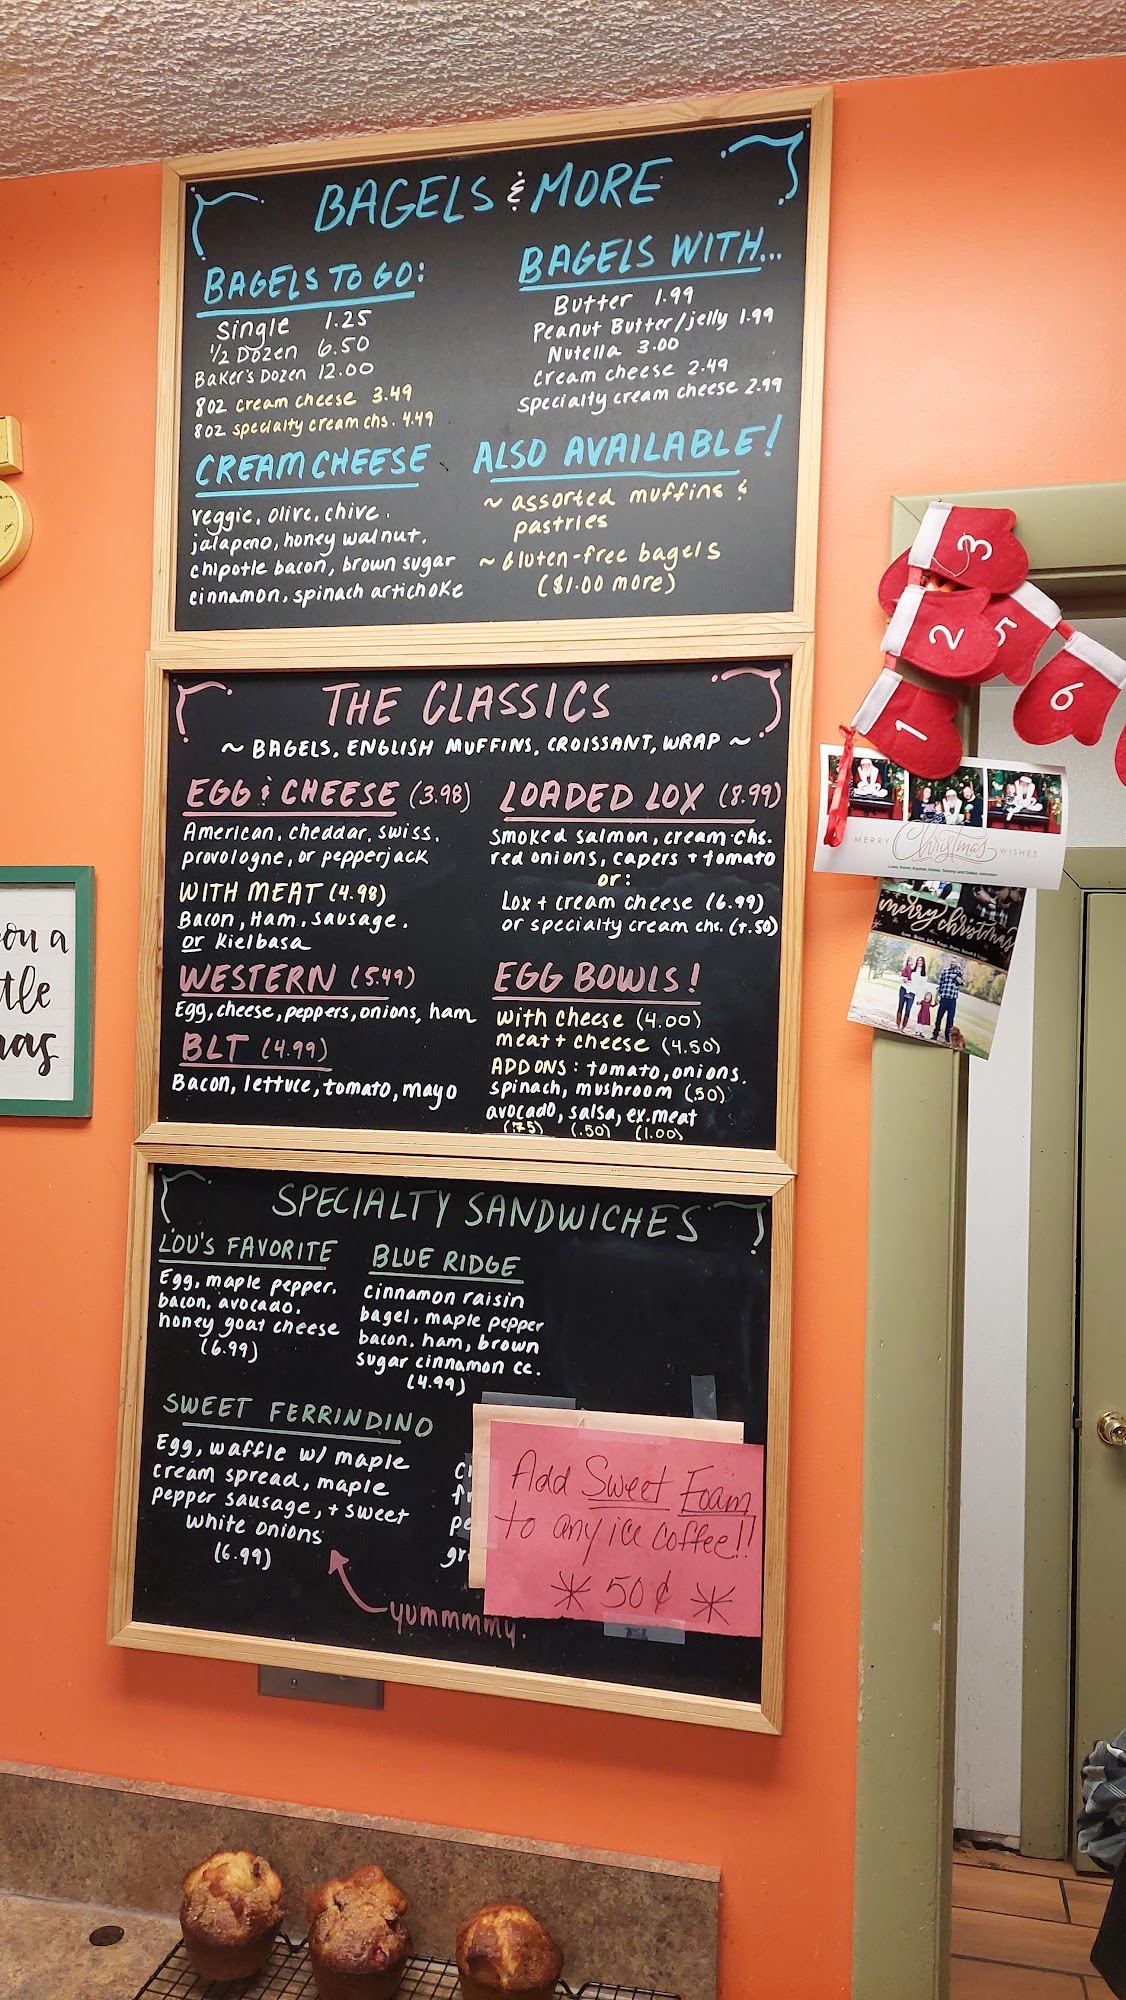 BAGELS & MORE
BAGELS TO GO:
Single 1.25
1/2 Dozen 6.50
Baker's Dozen 12.00
8oz cream cheese 3.49
8oz specialty cream chs. 4.49
BAGELS WITH...
Butter 1.99
Peanut Butter/jelly 1.99
Nutella 3.00
cream cheese 2.49
specialty cream cheese 2.99
CREAM CHEESE
veggie, olive, chive,
jalapeno, honey walnut,
chipotle bacon, brown sugar
cinnamon, spinach artichoke
ALSO AVAILABLE!
~ assorted muffins &
pastries
~ Gluten-free bagels
($1.00 more)
THE CLASSICS
~ BAGELS, ENGLISH MUFFINS, CROISSANT, WRAP ~
EGG & CHEESE (3.98)
American, cheddar, swiss,
provologne, or pepperjack
WITH MEAT (4.98)
Bacon, Ham, sausage,
or Kielbasa
WESTERN (5.49)
Egg, cheese, peppers, onions, ham
BLT (4.99)
Bacon, lettuce, tomato, mayo
LOADED LOX (8.99)
smoked salmon, cream chs.
red onions, capers + tomato
or:
Lox + cream cheese (6.99)
or specialty cream che. (+.50)
EGG BOWLS!
with cheese (4.00)
meat + cheese (4.50)
ADD ONS: tomato, onions,
spinach, mushroom (.50)
avocado, salsa, ex. meat
(.75) (.50) (1.00)
SPECIALTY SANDWICHES
LOU'S FAVORITE
Egg, maple pepper,
bacon, avocado,
honey goat cheese
(6.99)
BLUE RIDGE
cinnamon raisin
bagel, maple pepper
bacon, ham, brown
sugar cinnamon cc.
(4.99)
SWEET FERRINDINO
Egg, waffle w/ maple
cream spread, maple
pepper sausage, + sweet
white onions
(6.99)
yummmmy.
Add Sweet Foam
to any ice coffee!!
* 50¢ *
3
2
5
1
6
MERRY Christmas WISHES
merry christmas
you a